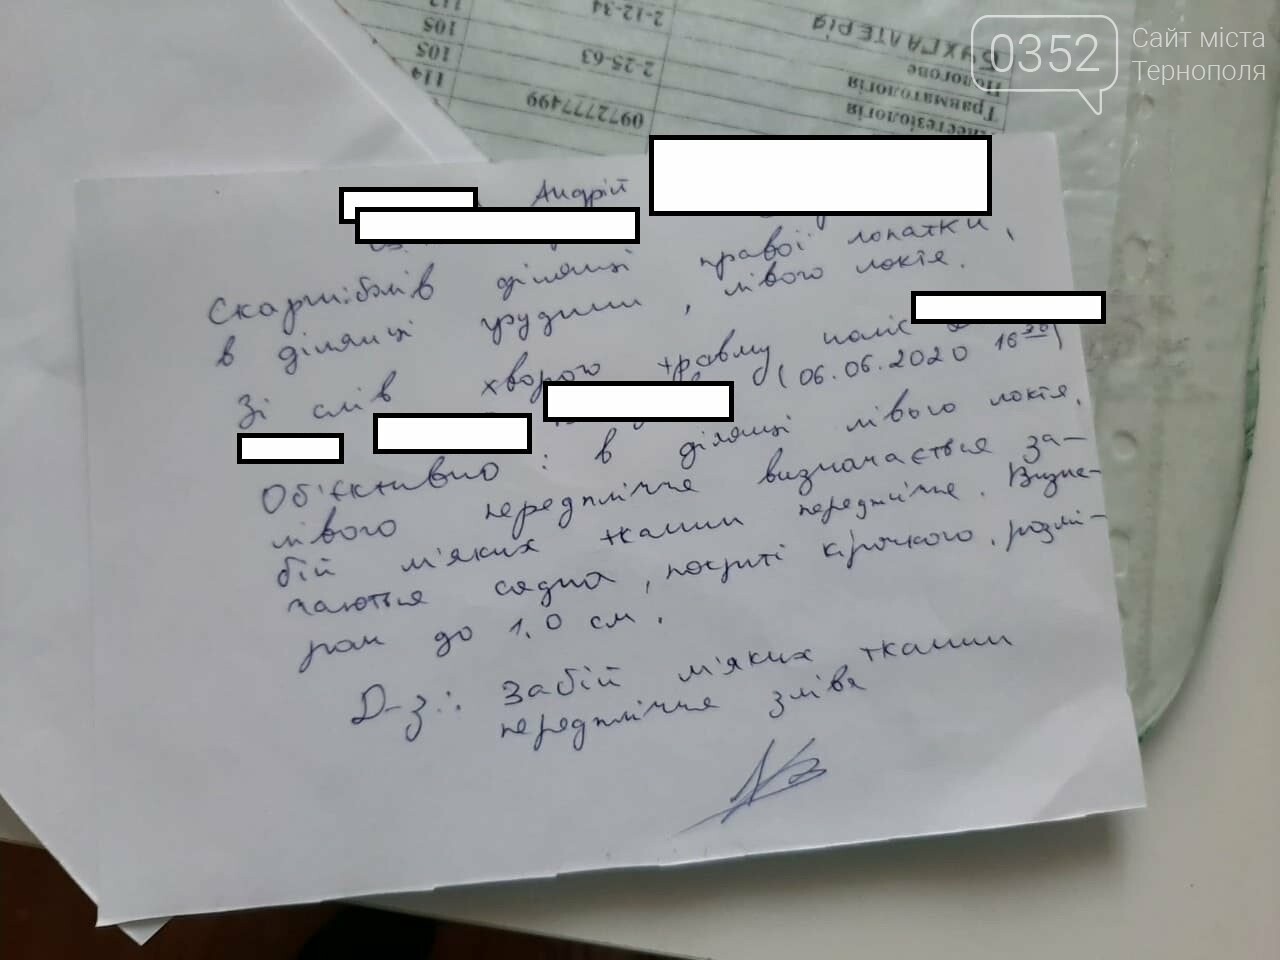 0352
Сайт міста
Тернополя
2-12-34
БУХГАЛТЕРІЯ
105
2-25-63
Пологове
105
Травматологія
114
0972777499
Андрій
Скарги: біль в ділянці правої лопатки,
в ділянці грудини, лівого ліктя.
Зі слів хворого травму поніс
(06.06.2020 16
Об'єктивно: в ділянці лівого ліктя,
лівого передпліччя визначається за-
бій м'яких тканин передпліччя. Визна-
чаються садна, покриті кірочкою, розмі-
ром до 1,0 см.
D-з.: Забій м'яких тканин
передпліччя зліва